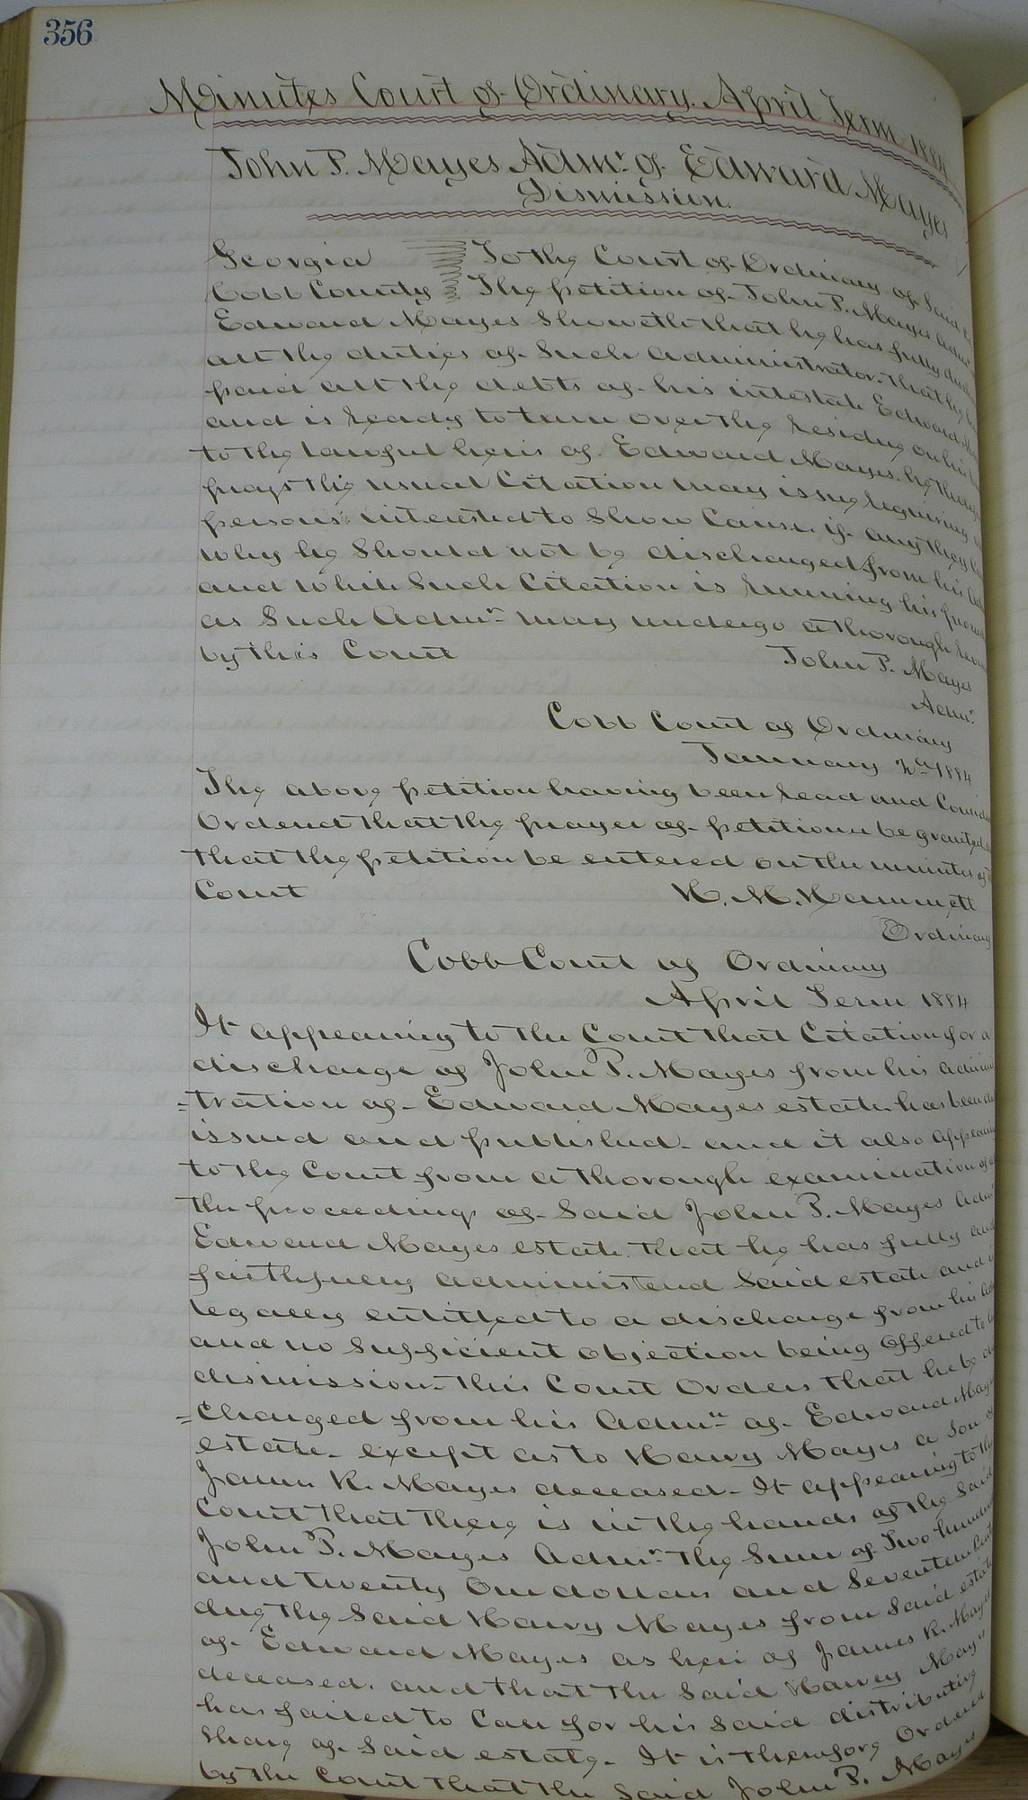 356
Minutes Court of Ordinary. April Term 1884
John P. Mayes Admr. of Edward Mayes
Dismission.
Georgia To the Court of Ordinary of Said
Cobb County The petition of John P. Mayes Admr
Edward Mayes Showeth that he has fully
all the duties of Such administrator. that he
paid all the debts of his intestate Edward
and is ready to turn over the residue on his
to the lawful heirs of Edward Mayes. he
prays the usual Citation may issue requiring
persons interested to Show Cause if any they
why he Should not be discharged from his
and while Such Citation is running his
as Such Admr may undergo a thorough
by this Court John P. Mayes
Admr.
Cobb Court of Ordinary
January 2d 1884
The above petition having been read and
Ordered that the prayer of petitioner be granted
that the petition be entered on the minutes of
Court H. M. Hammett
Ordinary
Cobb Court of Ordinary
April Term 1884
It appearing to the Court that Citation for a
discharge of John P. Mayes from his adminis
=tration of Edward Mayes estate has been
issued and published. and it also appearing
to the Court from a thorough examination of
the proceedings of Said John P. Mayes Admr
Edward Mayes estate. that he has fully and
faithfully administered Said estate and is
legally entitled to a discharge from his
and no Sufficient objection being offered to
dismission. this Court Orders that he be dis
=charged from his Admn of Edward Mayes
estate. except as to Harvy Mayes a Son of
James R. Mayes deceased. It appearing to the
Court that there is in the hands of the Said
John P. Mayes Admr. the Sum of Two hundred
and twenty One dollars and Seventeen Cents
due the Said Harvy Mayes from Said estate
of Edward Mayes as heir of James R. Mayes
deceased. and that the Said Harvey Mayes
has failed to Call for his Said distributive
Share of Said estate. It is therefore Ordered
by the Court that the Said John P. Mayes